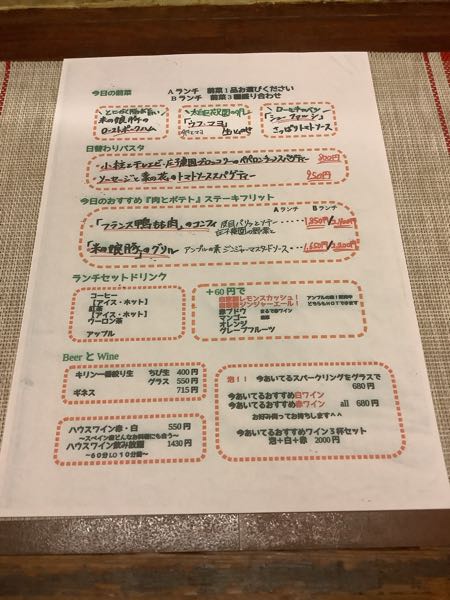 今日の前菜　Aランチ　前菜1品お選びください
Bランチ　前菜3種盛り合わせ
米の娘豚の
ローストポークハム
「ウフ・マヨ」
ロールキャベツ
「シューファルシ」
さっぱりトマトソース
日替わりパスタ
ペペロンチーノスパゲティー 800円
ソーセージと菜の花のトマトソーススパゲティー
950円
今日のおすすめ『肉とポテト』ステーキフリット
Aランチ Bランチ
「フランス鴨もも肉」のコンフィ
「米の娘豚」のグリル ジンジャーマスタードソース
ランチセットドリンク
コーヒー
【アイス・ホット】
紅茶
【アイス・ホット】
ウーロン茶
アップル
+60円で
レモンスカッシュ!
ジンジャーエール!
赤ブドウ まるで赤ワイン
マンゴー
オレンジ
グレープフルーツ
アンブルの泉!
どちらもHOTできます
Beer と Wine
キリン一番絞り生 ちび生 400円
グラス 550円
ギネス 715円
泡!! 今あいてるスパークリングをグラスで
680円
今あいてるおすすめ白ワイン
今あいてるおすすめ赤ワイン all 680円
お好み伺ってお持ちします^^
今あいてるおすすめワイン3杯セット
泡+白+赤 2000円
ハウスワイン赤・白 550円
～スペイン産どんなお料理にも合う～
ハウスワイン飲み放題 1430円
～60分LO10分前～